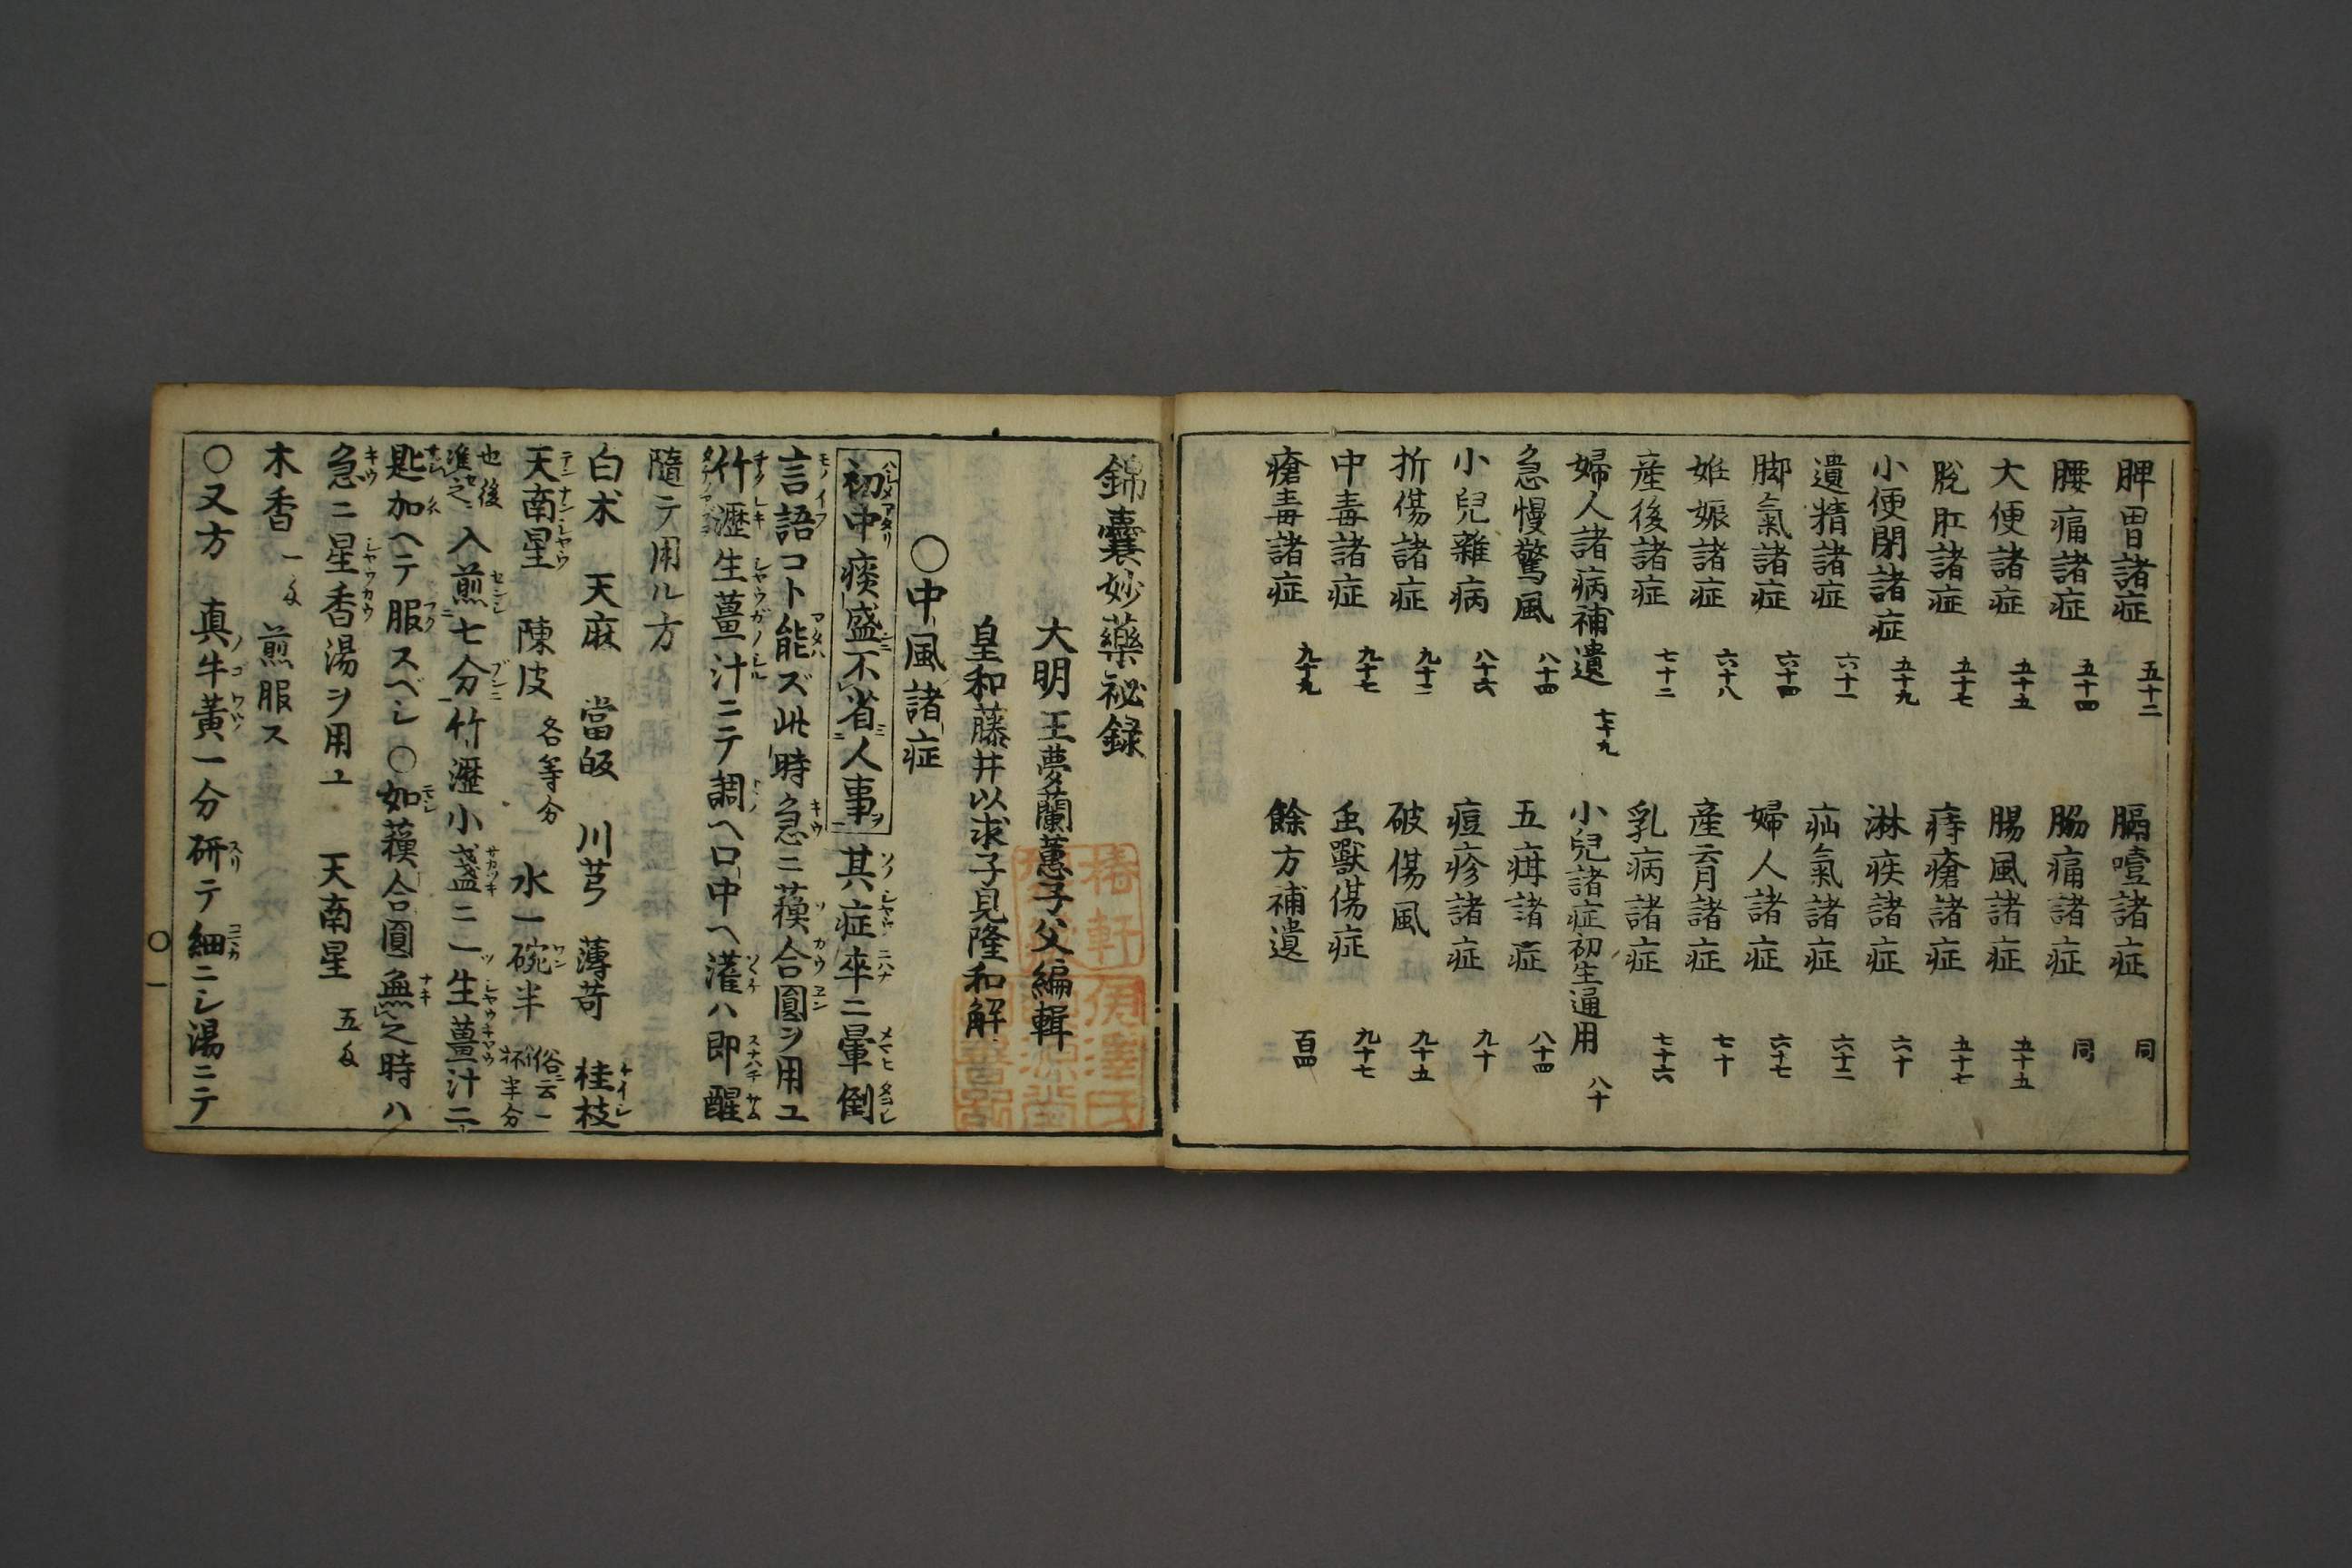 脾胃諸症 五十二 膈噎諸症 同
腰痛諸症 五十四 脇痛諸症 同
大便諸症 五十五 腸風諸症 五十五
脱肛諸症 五十七 痔瘡諸症 五十七
小便閉諸症 五十九 淋疾諸症 六十
遺精諸症 六十一 疝氣諸症 六十二
脚氣諸症 六十四 婦人諸症 六十七
姙娠諸症 六十八 産育諸症 七十
産後諸症 七十二 乳病諸症 七十六
婦人諸病補遺 七十九 小兒諸症初生通用 八十
急慢驚風 八十四 五疳諸症 八十四
小兒雜病 八十六 痘疹諸症 九十
折傷諸症 九十二 破傷風 九十五
中毒諸症 九十七 虫獸傷症 九十七
瘡毒諸症 九十九 餘方補遺 百四
錦囊妙藥祕録
大明 王夢蘭蕙子父編輯
皇和藤井以求子見隆和解
〇中風諸症
初中痰盛不省人事 其症卒ニ暈倒
言語コト能ズ此時急ニ蘓合圓ヲ用ユ
竹瀝生薑汁ニテ調ヘ口中ヘ灌ハ即醒
隨テ用ル方
白朮 天麻 當皈 川芎 薄荷 桂枝
天南星 陳皮 各等分 水一碗半 俗ニ云一杯半分
也後準之 入煎七分ニ竹瀝小盞ニ一ツ生薑汁二
匙加ヘテ服スベシ〇如蘓合圓無之時ハ
急ニ星香湯ヲ用ユ 天南星 五匁
木香 一匁 煎服ス
〇又方 真牛黃一分研テ細ニシ湯ニテ
〇一